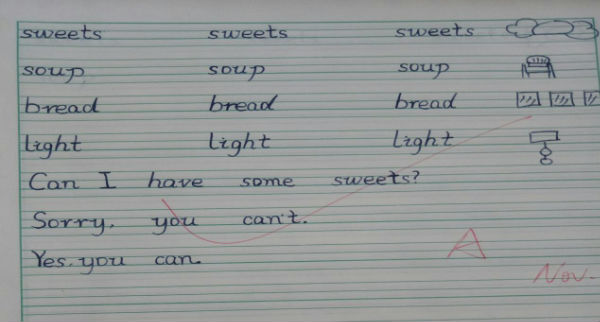 sweets sweets sweets
soup soup soup
bread bread bread
light light light
Can I have some sweets?
Sorry, you can't.
Yes, you can.
A
Nov.